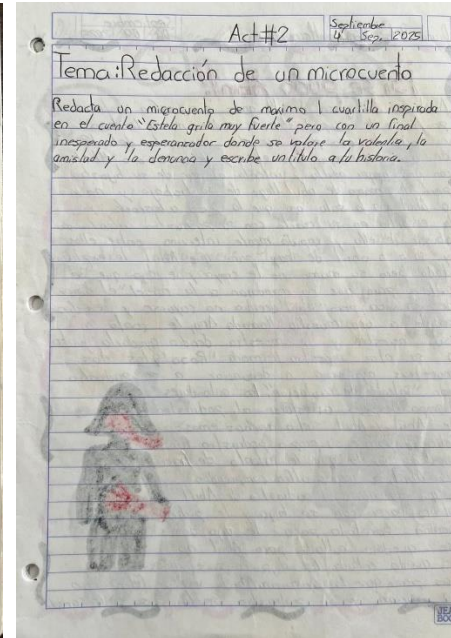 Act#2
Septiembre
4 Sep. 2025
Tema: Redacción de un microcuento
Redacta un microcuento de maximo 1 cuartilla inspirada
en el cuento "Estela grita muy fuerte" pero con un final
inesperado y esperanzador donde se valore la valentia, la
amistad y la denuncia y escribe un titulo a tu historia.